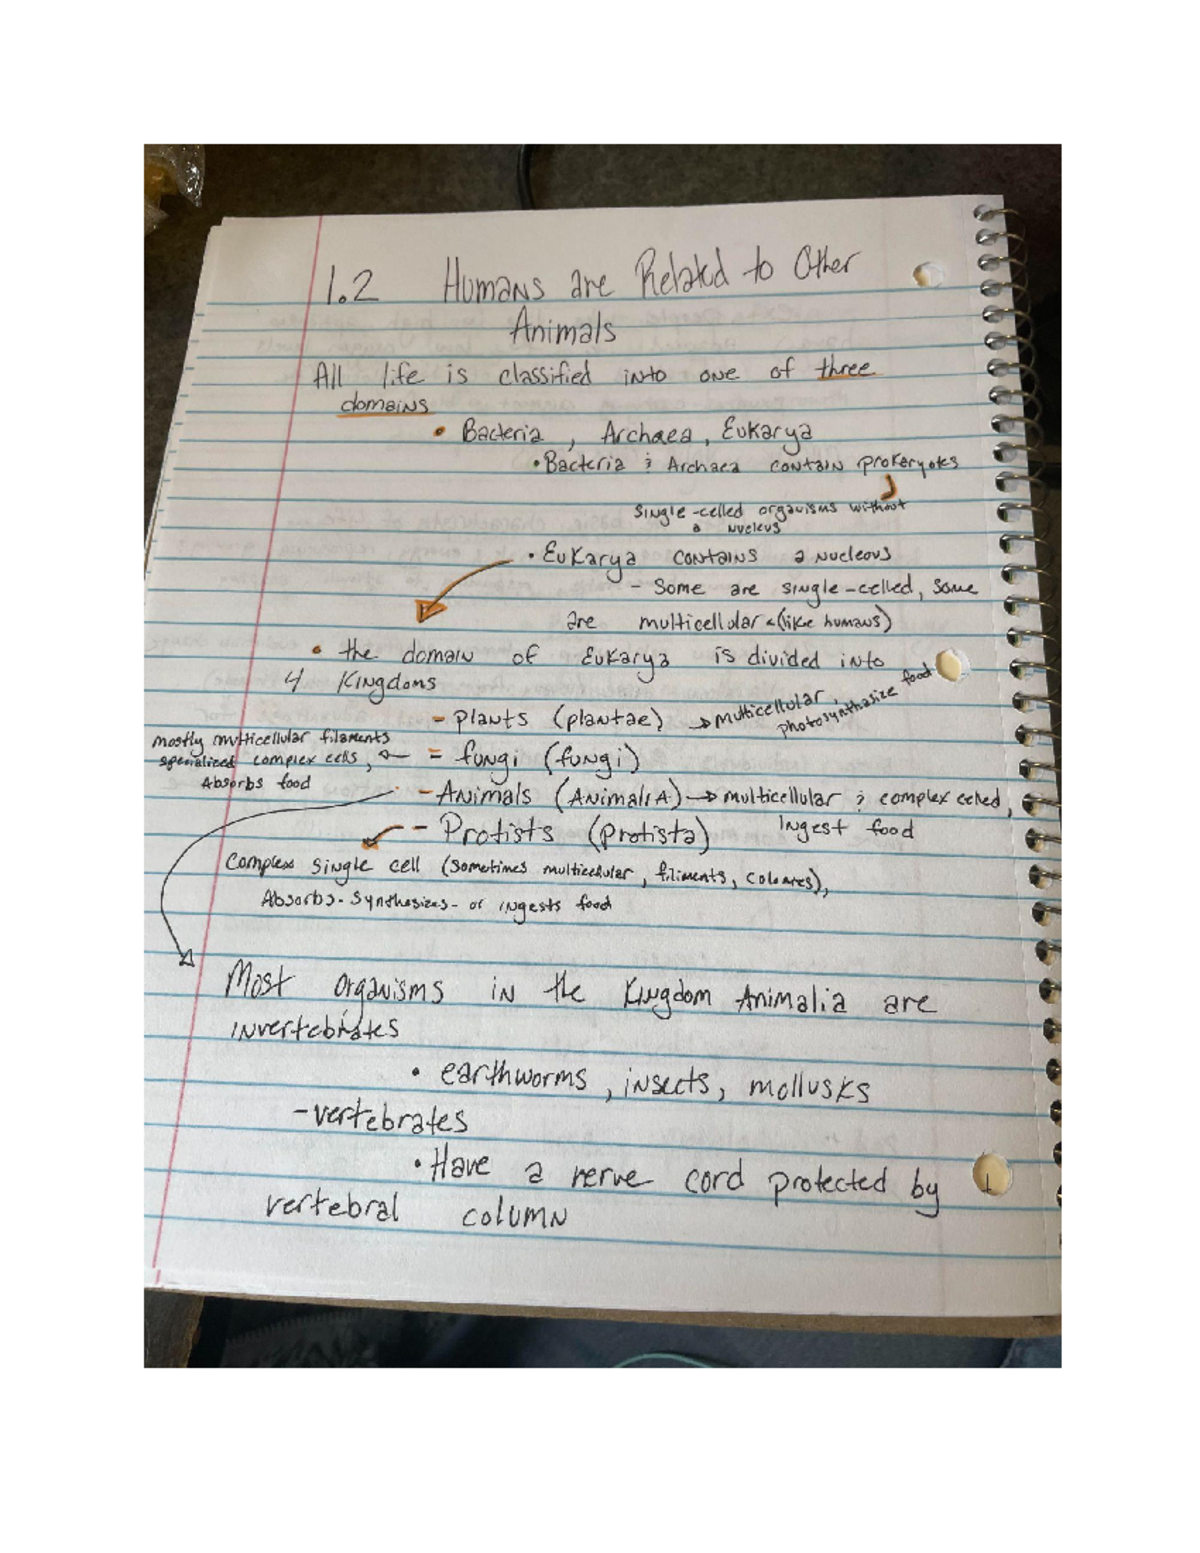 1.2 Humans are Related to Other
Animals
All life is classified into one of three
domains
• Bacteria, Archaea, Eukarya
• Bacteria & Archaea contain prokaryotes
single-celled organisms without
a nucleus
• Eukarya contains a nucleous
- Some are single-celled, some
are multicellular (like humans)
• the domain of Eukarya is divided into
4 Kingdoms
- plants (plantae) → multicellular, photosynthasize food
mostly multicellular filaments
specialized complex cells, ← = fungi (fungi)
Absorbs food
- Animals (AnimaliA) → multicellular & complex celled,
Ingest food
- Protists (Protista)
Complex single cell (sometimes multicellular, filiments,
Absorbs - Synthesizes - or ingests food
Most organisms in the Kingdom Animalia are
invertebrates
• earthworms, insects, mollusks
- vertebrates
• Have a nerve cord protected by
vertebral column